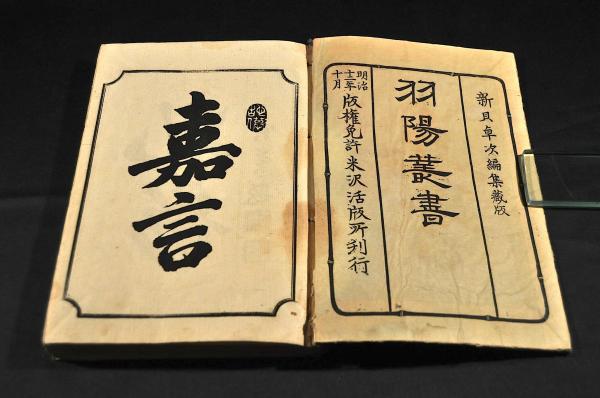 新貝卓次編集蔵版
羽陽叢書
明治
十月
版権免許 米沢活版所刊行
嘉言